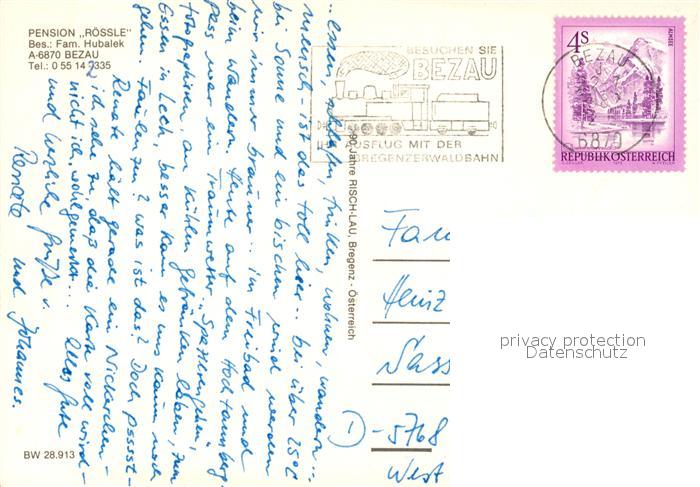 PENSION „RÖSSLE"
Bes.: Fam. Hubalek
A-6870 BEZAU
Tel.: 0 55 14 2335
BESUCHEN SIE
BEZAU
AUSFLUG MIT DER
BREGENZERWALDBAHN
BEZAU
6870
4S
ALMSEE
REPUBLIK ÖSTERREICH
..essen, schlafen, trinken, wohnen, wandern...
Mensch - ist das toll hier.. bei über 25°C
bei Sonne und ein bischen Wind werden
wir immer brauner.. im Freibad und
beim Wandern. Heute auf dem Hochtannberg-
pass war ein Traumwetter. „Spazierengehen",
fotographieren, an kühlen Getränken laben, zum
Essen in Lech besser kann es uns kaum noch
gehen. Faulenzen? was ist das? Doch pssst-
Renate hält gerade ein Nickerchen-
ich sehe zu, daß die Karte voll wird-
nicht ich, wohlgemerkt... Alles Gute
und herzliche Grüße v.
Renate und Johannes.
90 Jahre RISCH-LAU, Bregenz - Österreich
Fam
Heinz
Sass
D -5768
West
BW 28.913
privacy protection
Datenschutz